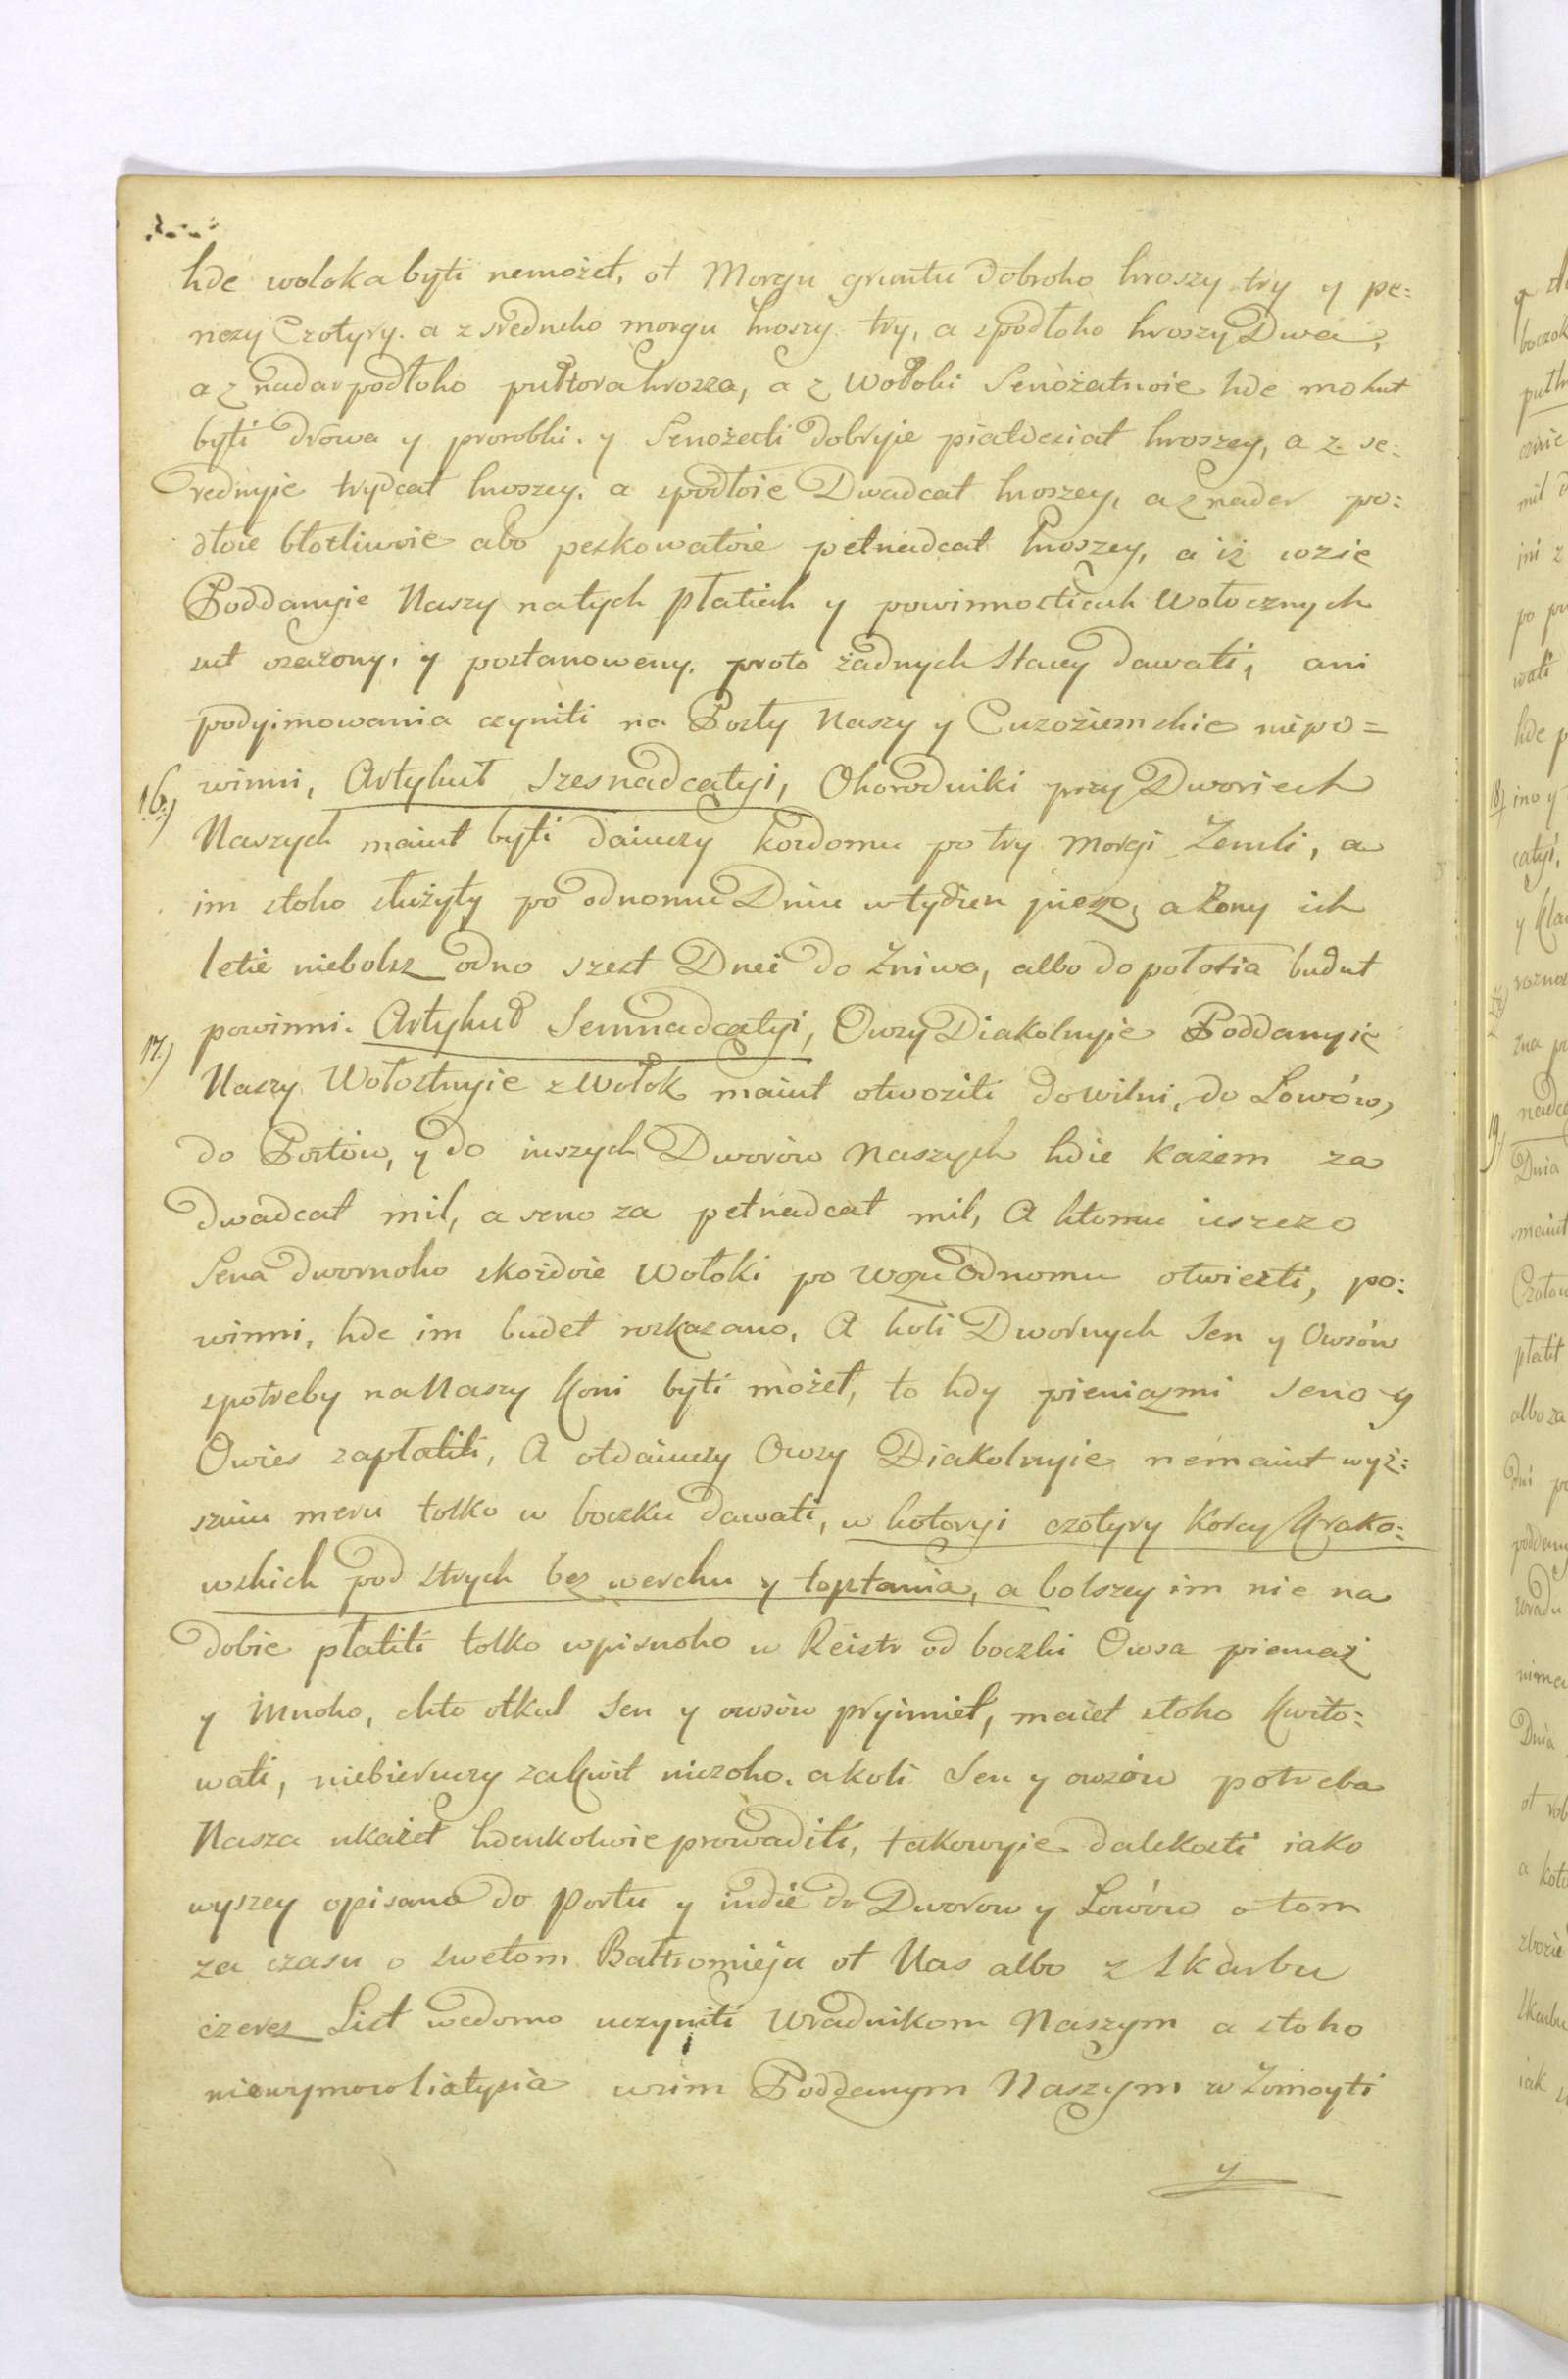 hde woloka byti nemożet, ot Morgu gruntu dobroho hroszy try y pe:
nezy Czotyry. a z sredneho morgu hroszy try, a spodłoho hroszy Dwa,
a z nadar podłoho pułtora hrosza, a z Wołoki Senożatnoie hde mohut
byti drowa y prorobki. y Senożeti dobryie piatdesiat hroszey, a z se:
rednyie trydcat hroszey. a spodłoie Dwadcat hroszey, a z nader po:
dłoie błotliwoie abo peskowatoie petnadcat hroszey, a iż wzie
Poddanyie Naszy natych płatiech y powinnostiach Wołocznych
sut osażony. y postanoweny. proto żadnych Stacy dawati, ani
podyimowania czyniti na Posły Naszy y Cuzoziemskie niepo=
16) winni, Artykuł Szesnadcatyi, Ohorodniki przy Dworiech
Naszych maiut byti daiuczy kożdomu po try Morgi Zemli, a
im stoho służyty po odnomu Dniu wtyżden pieszo, a żony ich
letie niebolsz odno szest Dnei do żniwa, albo do połotia budut
17) powinni. Artykuł Semnadcatyi, Owsy Diakolnyie Poddanyie
Naszy Wołostnyie z Wołok maiut otwoziti do wilni, do Lowów,
do Portów, y do inszych Dworów Naszych hdie każem za
dwadcat mil, a seno za petnadcat mil, A ktomu ieszczo
Sena dwornoho skożdoie Wołoki po wozu odnomu otwiesti, po:
winni, hde im budet rozkazano, A koli Dwornych Sen y Owsów
spotreby na Naszy Koni byti możet, to hdy pieniazmi Seno y
Owies zapłatiti, A otdaiuczy Owsy Diakolnyie nemaiut wyż:
szuiu meru tolko w boczku dawati, w kotoryi czotyry Korcy Krako:
wskich pod strych bez werchu y toptania, a bolszey im nie na
dobie płatiti tolko wpisnoho w Reistr od boczki Owsa pieniaż
y Mnoho, chto otkul Sen y owsów pryimiet, maiet stoho kwito:
wati, niebieruczy zakwit niczoho. a koli Sen y owsów potreba
Nasza ukażet hdenkolwie prowaditi, takowyie dalekosti iako
wyszey opisano do Portu y indie do Dworow y Lowów o tom
za czasu o swetom Bałtromieju ot Nas albo z Skarbu
czerez List wedomo uczyniti Wradnikom Naszym a stoho
niewymowliatysia wsim Poddanym Naszym w Żomoyti
y